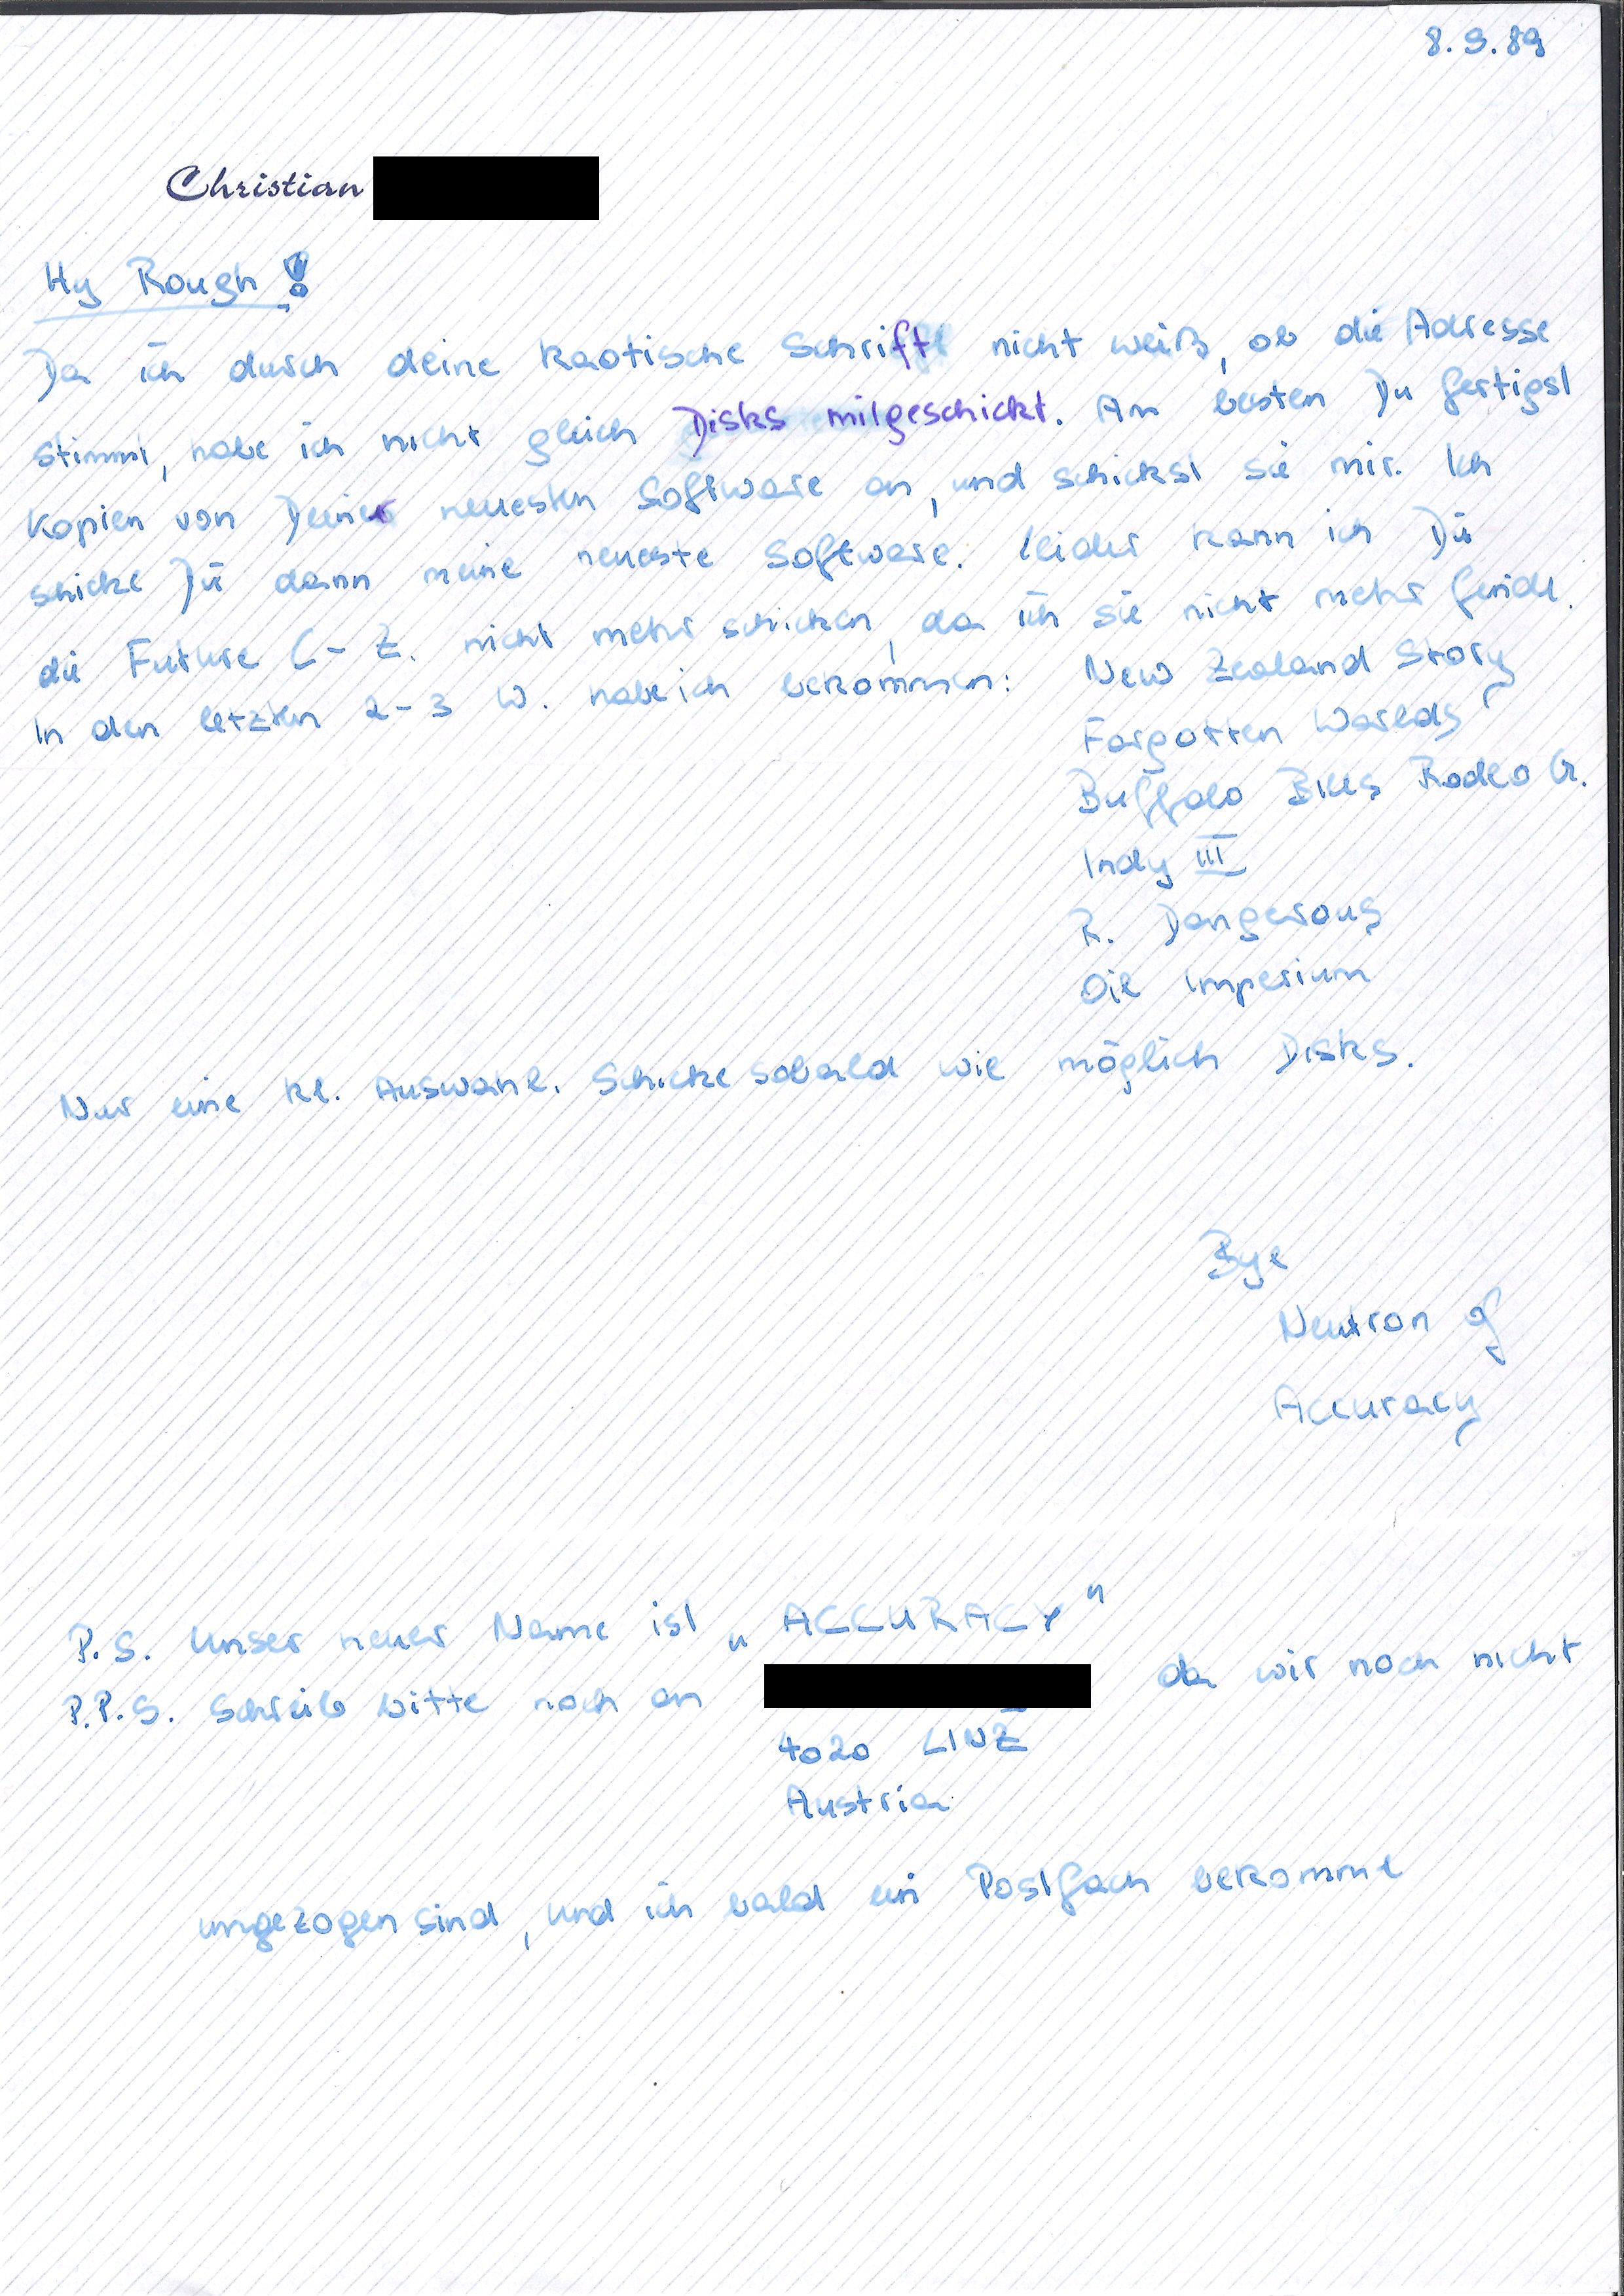 8.9.89
Christian
Hy Rough!
Da ich durch deine kaotische Schrift nicht weiß, ob die Adresse
stimmt, habe ich nicht gleich Disks mitgeschickt. Am besten Du fertigst
Kopien von Deiner neuesten Software an, und schickst sie mir. Ich
schicke Dir dann meine neueste Software. Leider kann ich Dir
die Future C-Z. nicht mehr schicken, da ich sie nicht mehr finde.
In den letzten 2-3 W. habe ich bekommen: New Zealand Story
Forgotten Worlds
Buffalo Bills Rodeo G.
Indy III
R. Dangerous
Oil Imperium
Nur eine kl. Auswahl. Schicke sobald wie möglich Disks.
Bye
Neutron of
Accuracy
P.S. Unser neuer Name ist „ACCURACY"
P.P.S. Schreib bitte noch an da wir noch nicht
4020 LINZ
Austria
umgezogen sind, und ich bald ein Postfach bekomme